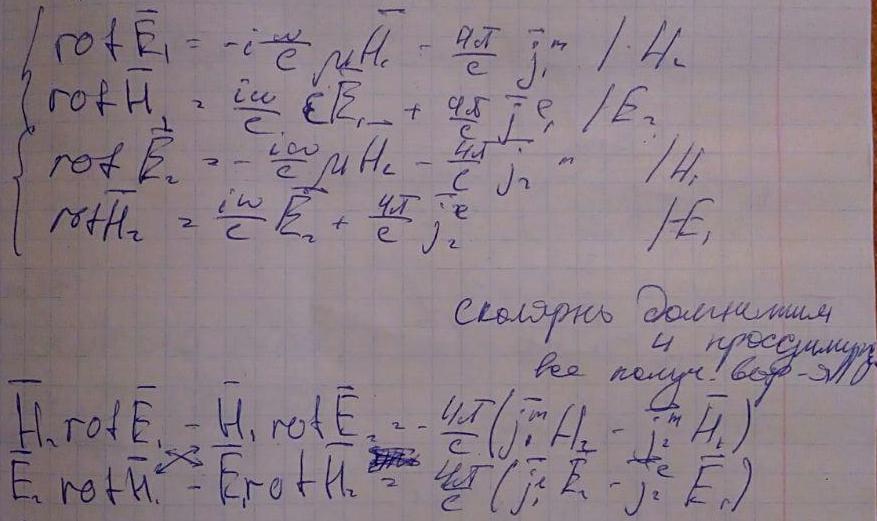 rot Ē₁ = -i ω/c μH̄₁ - 4π/c j̄₁ᵐ / · H₂
rot H̄₁ = iω/c εĒ₁ + 4π/c j̄₁ᵉ / E₂
rot Ē₂ = - iω/c μH₂ - 4π/c j̄₂ᵐ / H₁
rot H̄₂ = iω/c Ē₂ + 4π/c j̄₂ᵉ / · E₁
скалярно домножим
и просуммируем
все получ.
H̄₂ rot Ē₁ - H̄₁ rot Ē₂ = - 4π/c (j̄₁ᵐ H₂ - j̄₂ᵐ H̄₁)
Ē₂ rot H̄₁ - Ē₁ rot H̄₂ = 4π/c (j̄₁ᵉ Ē₂ - j̄₂ᵉ Ē₁)